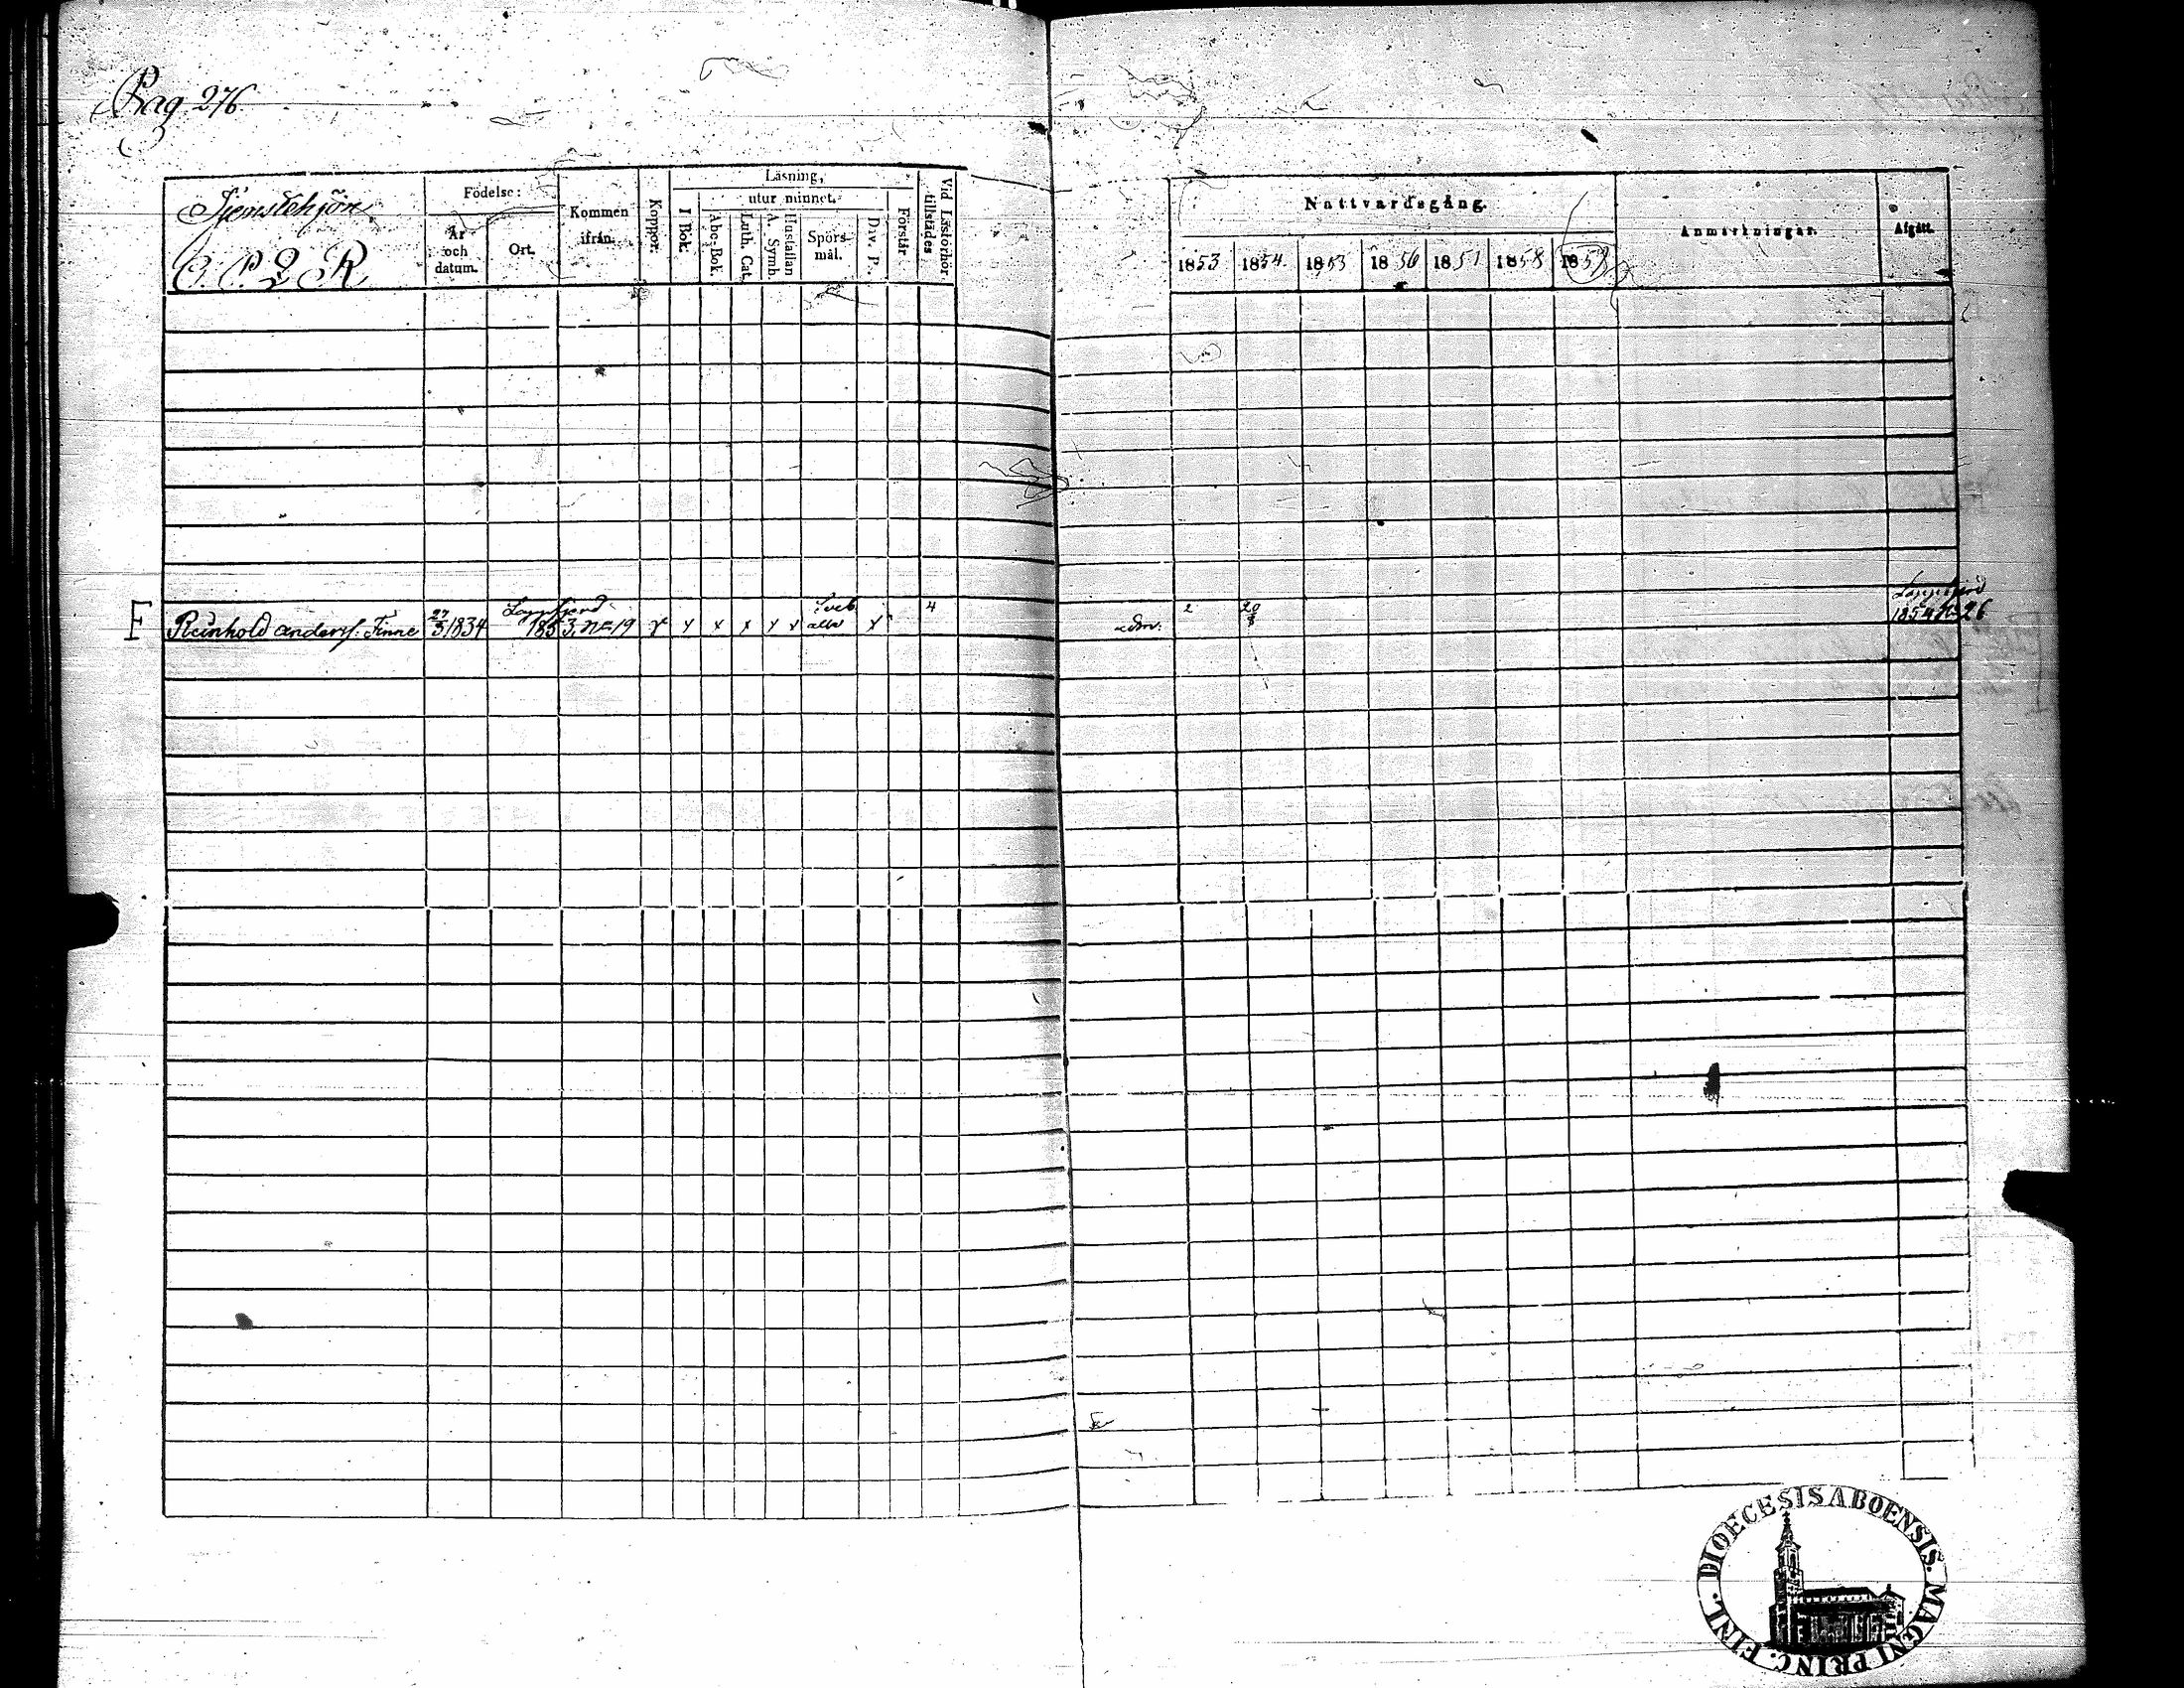 Pag. 276.
Tjenstehjon
O. P. Q. R.
Födelse:
År och datum.
Ort.
Kommen ifrån.
Koppor.
Läsning,
I Bok.
utur minnet.
Abc-Bok.
Luth. Cat.
A. Symb.
Hustaflan
Spörsmål.
Div. P.
Förstår
Vid Läsförhör tillstädes
Nattvardsgång.
1853 1854. 1853 1856 1851 1858 1859
Anmärkningar.
Afgått.
F Reinhold Anders. Finne 27/3 1834 1853, N=19 x x x x x x x 4
adm. 2 20/8
1854 N=26
DIOECESIS ABOENSIS. MAGNI PRINC. FINL.